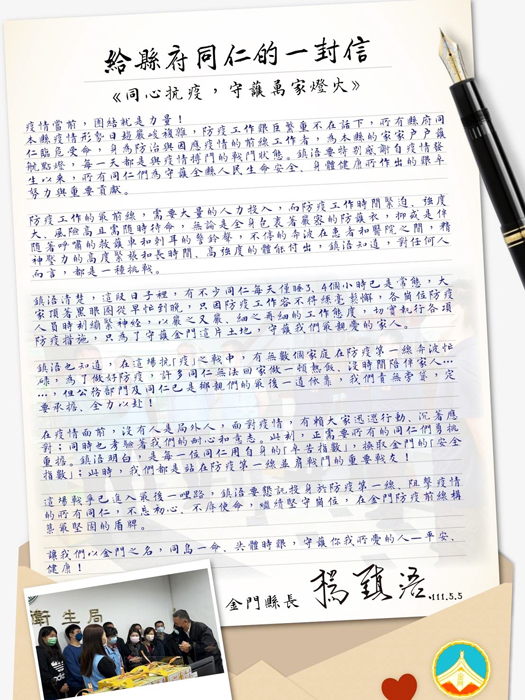 給縣府同仁的一封信
《同心抗疫，守護萬家燈火》
疫情當前，團結就是力量！
本縣疫情形勢日趨嚴峻複雜，防疫工作艱巨繁重不在話下，所有縣府同
仁臨危受命，身為防治與因應疫情的前線工作者，為本縣的家家戶戶護
航點燈，每一天都是與疫情搏鬥的戰鬥狀態。鎮浯要特別感謝自疫情發
生以來，所有同仁們為守護全縣人民生命安全、身體健康所作出的艱卓
努力與重要貢獻。
防疫工作的最前線，需要大量的人力投入，而防疫工作時間緊迫、強度
大、風險高且需隨時待命，無論是全身包裹著嚴密的防護衣，抑或是伴
隨著呼嘯的救護車和刺耳的警鈴聲，不停的奔波在患者和醫院之間，精
神壓力的高度緊張和長時間、高強度的體能付出，鎮浯知道，對任何人
而言，都是一種挑戰。
鎮浯清楚，這段日子裡，有不少同仁每天僅睡3、4個小時已是常態，大
家頂著黑眼圈從早忙到晚，只因防疫工作容不得絲毫鬆懈，各崗位防疫
人員時刻繃緊神經，以嚴之又嚴、細之再細的工作態度，切實執行各項
防疫措施，只為了守護金門這片土地，守護我們最親愛的家人。
鎮浯也知道，在這場抗「疫」之戰中，有無數個家庭在防疫第一線奔波忙
碌，為了做好防疫，許多同仁無法回家做一頓熱飯、沒時間陪伴家人…
…，但公務部門及同仁已是鄉親們的最後一道依靠，我們責無旁貸，定
要承擔、全力以赴！
在疫情面前，沒有人是局外人，面對疫情，有賴大家迅速行動、沉著應
對；同時也考驗著我們的耐心和意志。此刻，正需要所有的同仁們勇挑
重擔。鎮浯明白，是每一位同仁用自身的「辛苦指數」，換取金門的「安全
指數」；此時，我們都是站在防疫第一線並肩戰鬥的重要戰友！
這場戰爭已進入最後一哩路，鎮浯要懇託投身於防疫第一線、阻擊疫情
的所有同仁，不忘初心、不辱使命，繼續堅守崗位，在金門防疫前線構
築最堅固的盾牌。
讓我們以金門之名，同島一命、共體時艱，守護你我所愛的人—平安、
健康！
金門縣長 楊鎮浯 111.5.5
衛生局